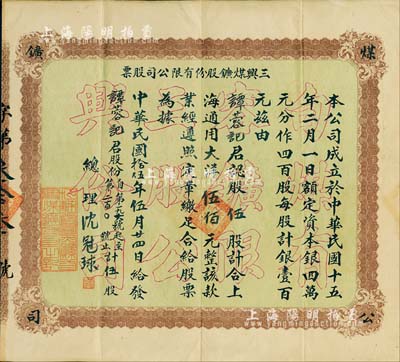 上海陽明拍賣
煤
鑛
公
司
三興煤鑛股份有限公司股票
本公司成立於中華民國十五
年二月一日額定資本銀四萬
元分作四百股每股計銀壹百
元茲由
譚蓉記君認股伍股計合上
海通用大洋伍佰元整該款
業經遵照定章繳足合給股票
為據
中華民國拾伍年伍月廿四日給發
譚蓉記君股份自第 號起至
第 號止計伍股
總理沈冠球
字第 號
上海陽明拍賣